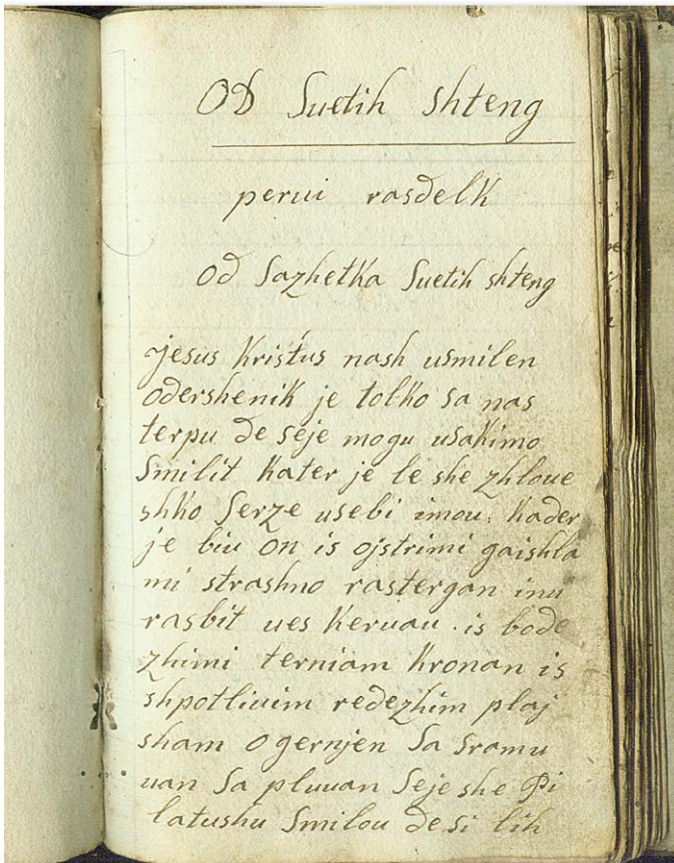 OD Suetih shteng
perui rasdelk
od Sazhetka Suetih shteng
jesus Kristus nash usmilen
odershenik je tolko sa nas
terpu de seje mogu usakimo
Smilit kater je le she zhloue
shko Serze usebi imou. kader
je biu on is ojstrimi gaishla
mi strashno rastergan inu
rasbit ues keruau. is bode
zhimi terniam kronan is
shpotliuim redezhim plaj
sham ogernjen Sa sramu
uan Sa pluuan Seje she Pi
latushu Smilou de si lih